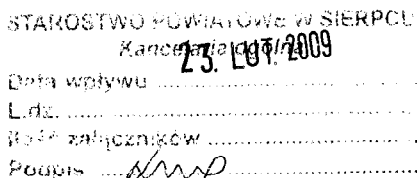 STAROSTWO POWIATOWE W SIERPCU
Kancelaria ogólna
23. LUT. 2009
Data wpływu
L.dz.
Ilość załączników
Podpis